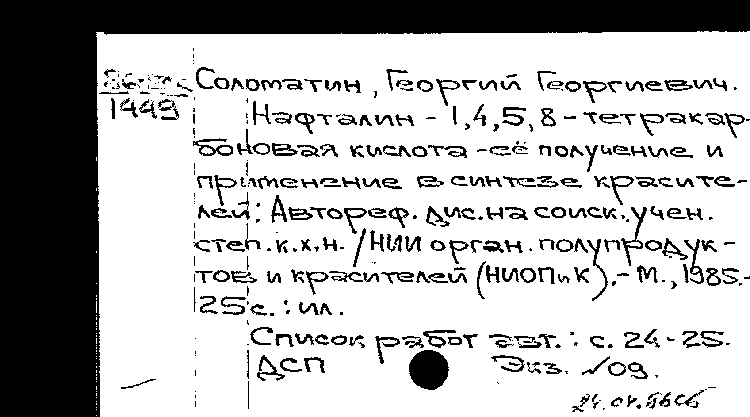 1449
Соломатин, Георгий Георгиевич.
Нафталин-1,4,5,8-тетракар-
боновая кислота - её получение и
применение в синтезе красите-
лей: Автореф. дис. на соиск. учен.
степ. к.х.н. /НИИ орган. полупродук-
тов и красителей (НИОПиК).- М., 1985.-
25 с. : ил.
Список работ авт. : с. 24-25.
ДСП Экз. №09.